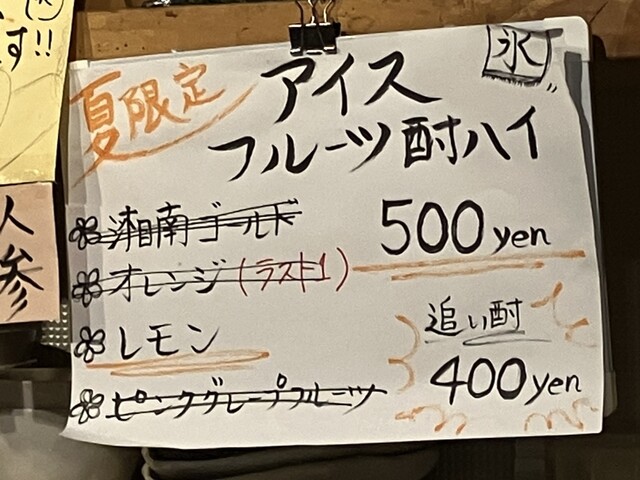 す!!
人参
夏限定
氷
アイス
フルーツ酎ハイ
湘南ゴールド
500yen
オレンジ(ラスト1)
レモン
追い酎
400yen
ピンクグレープフルーツ